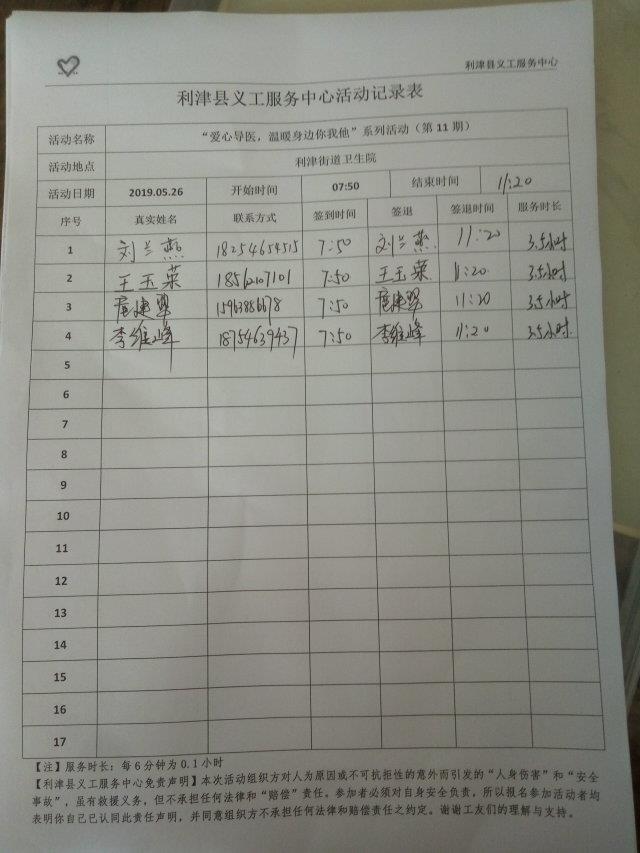 利津县义工服务中心
利津县义工服务中心活动记录表
活动名称 “爱心导医，温暖身边你我他”系列活动（第 11 期）
活动地点 利津街道卫生院
活动日期 2019.05.26 开始时间 07:50 结束时间 11:20
序号 真实姓名 联系方式 签到时间 签退 签退时间 服务时长
1 刘兰燕 18254654515 7:50 刘兰燕 11:20 3.5小时
2 王玉菜 18562107101 7:50 王玉菜 11:20 3.5小时
3 15963886678 7:50 11:20 3.5小时
4 李维峰 18754639437 7:50 李维峰 11:20 3.5小时
5
6
7
8
9
10
11
12
13
14
15
16
17
【注】服务时长：每 6 分钟为 0.1 小时
【利津县义工服务中心免责声明】本次活动组织方对人为原因或不可抗拒性的意外而引发的“人身伤害”和“安全
事故”，虽有救援义务，但不承担任何法律和“赔偿”责任。参加者必须对自身安全负责，所以报名参加活动者均
表明你自己已认同此责任声明，并同意组织方不承担任何法律和赔偿责任之约定。谢谢工友们的理解与支持。